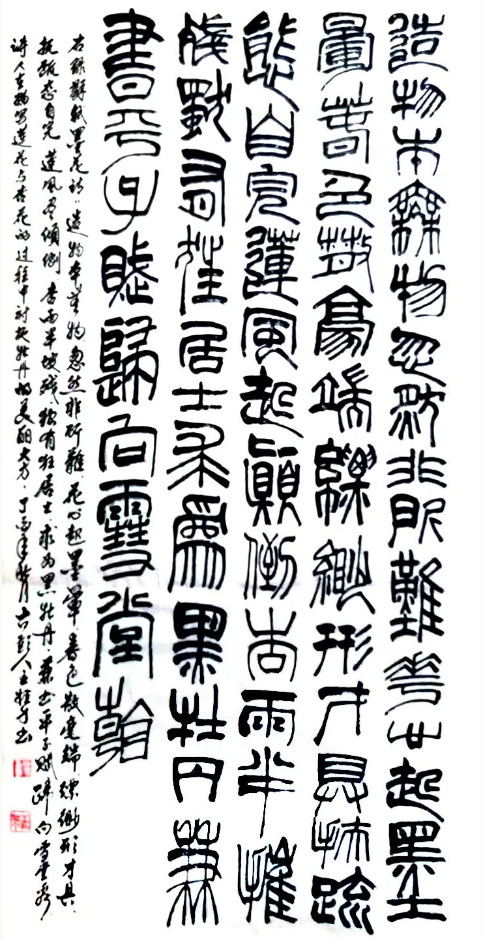 造物本無物忽然非所難花心起墨
暈春色散毫端縹緲形才具扶疏
態自完蓮風起顛倒杏雨半摧
殘獨有狂居士求為黑牡丹兼
書平子賦歸向雪堂看
右録蘇軾墨花詩：造物本無物忽然非所難花心起墨暈春色散毫端縹緲形才具
扶疏態自完蓮風盡傾倒杏雨半殘獨有狂居士求為黑牡丹兼書平子賦歸向雪堂看
詩人在描寫蓮花与杏花的过程中托牡丹的美丽大方丁酉年月古彭人王書